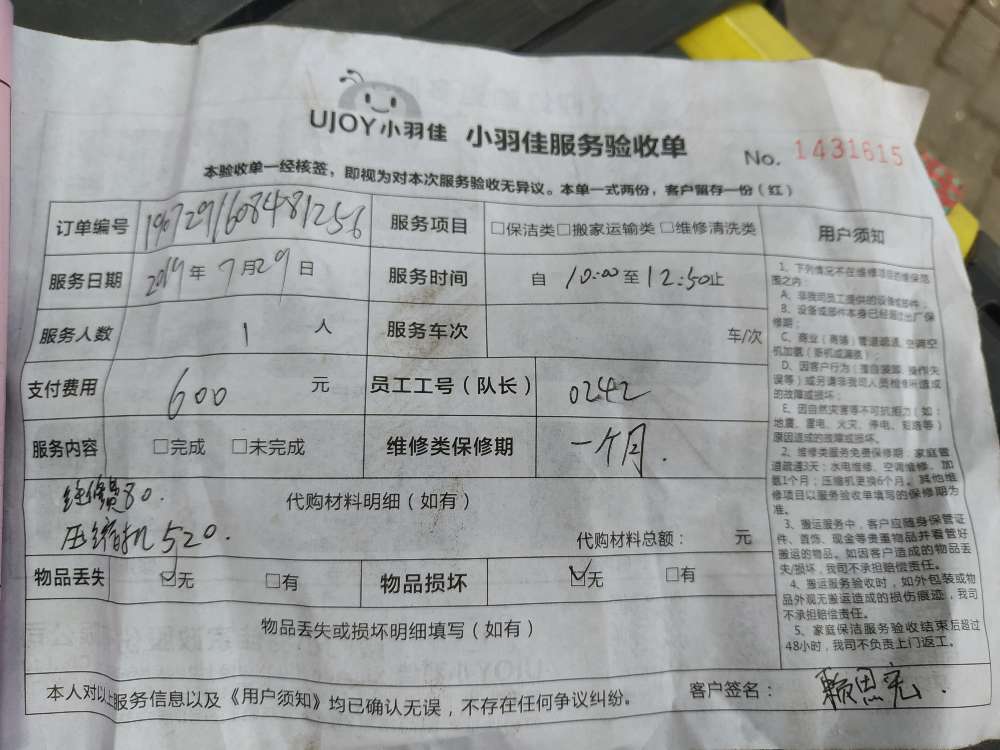 UJOY小羽佳 小羽佳服务验收单
No. 1431615
本验收单一经核签，即视为对本次服务验收无异议。本单一式两份，客户留存一份（红）
订单编号 190729160848256 服务项目 □保洁类□搬家运输类□维修清洗类
服务日期 2019年7月29日 服务时间 自10:00至12:50止
服务人数 1 人 服务车次 车/次
支付费用 600 元 员工工号（队长） 0242
服务内容 □完成 □未完成 维修类保修期 一个月.
维修费80. 代购材料明细（如有）
压缩机520.
代购材料总额： 元
物品丢失 ☑无 □有 物品损坏 ☑无 □有
物品丢失或损坏明细填写（如有）
本人对以上服务信息以及《用户须知》均已确认无误，不存在任何争议纠纷。
客户签名： 赖思宏.
用户须知
1、下列情况不在维修项目的维保范
围之内：
A、非我司员工提供的设备或部件；
B、设备或部件本身已经超过出厂保
修期；
C、商业（商铺）管道疏通、空调空
机加氨（新机或漏氨）；
D、因客户行为（擅自装卸、操作失
误等）或另请非我司人员检修所造成
的故障或损坏；
E、因自然灾害等不可抗拒力（如：
地震、雷电、火灾、停电、短路等）
原因造成的故障或损坏。
2、维修类服务免费保修期：家庭管
道疏通3天；水电维修、空调维修、加
氨1个月；压缩机更换6个月。其他维
修项目以服务验收单填写的保修期为
准。
3、搬运服务中，客户应随身保管证
件、首饰、现金等贵重物品并看管好
搬运的物品。如因客户造成的物品丢
失/损坏，我司不承担赔偿责任。
4、搬运服务验收时，如外包装或物
品外观无搬运造成的损伤痕迹，我司
不承担赔偿责任。
5、家庭保洁服务验收结束后超过
48小时，我司不负责上门返工。